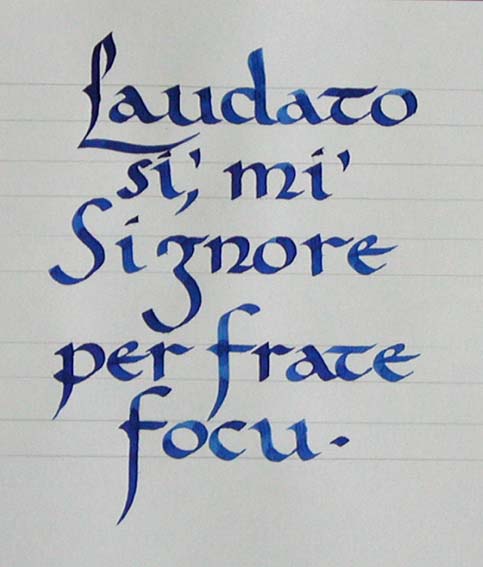 Laudato
si', mi'
Signore
per frate
focu.